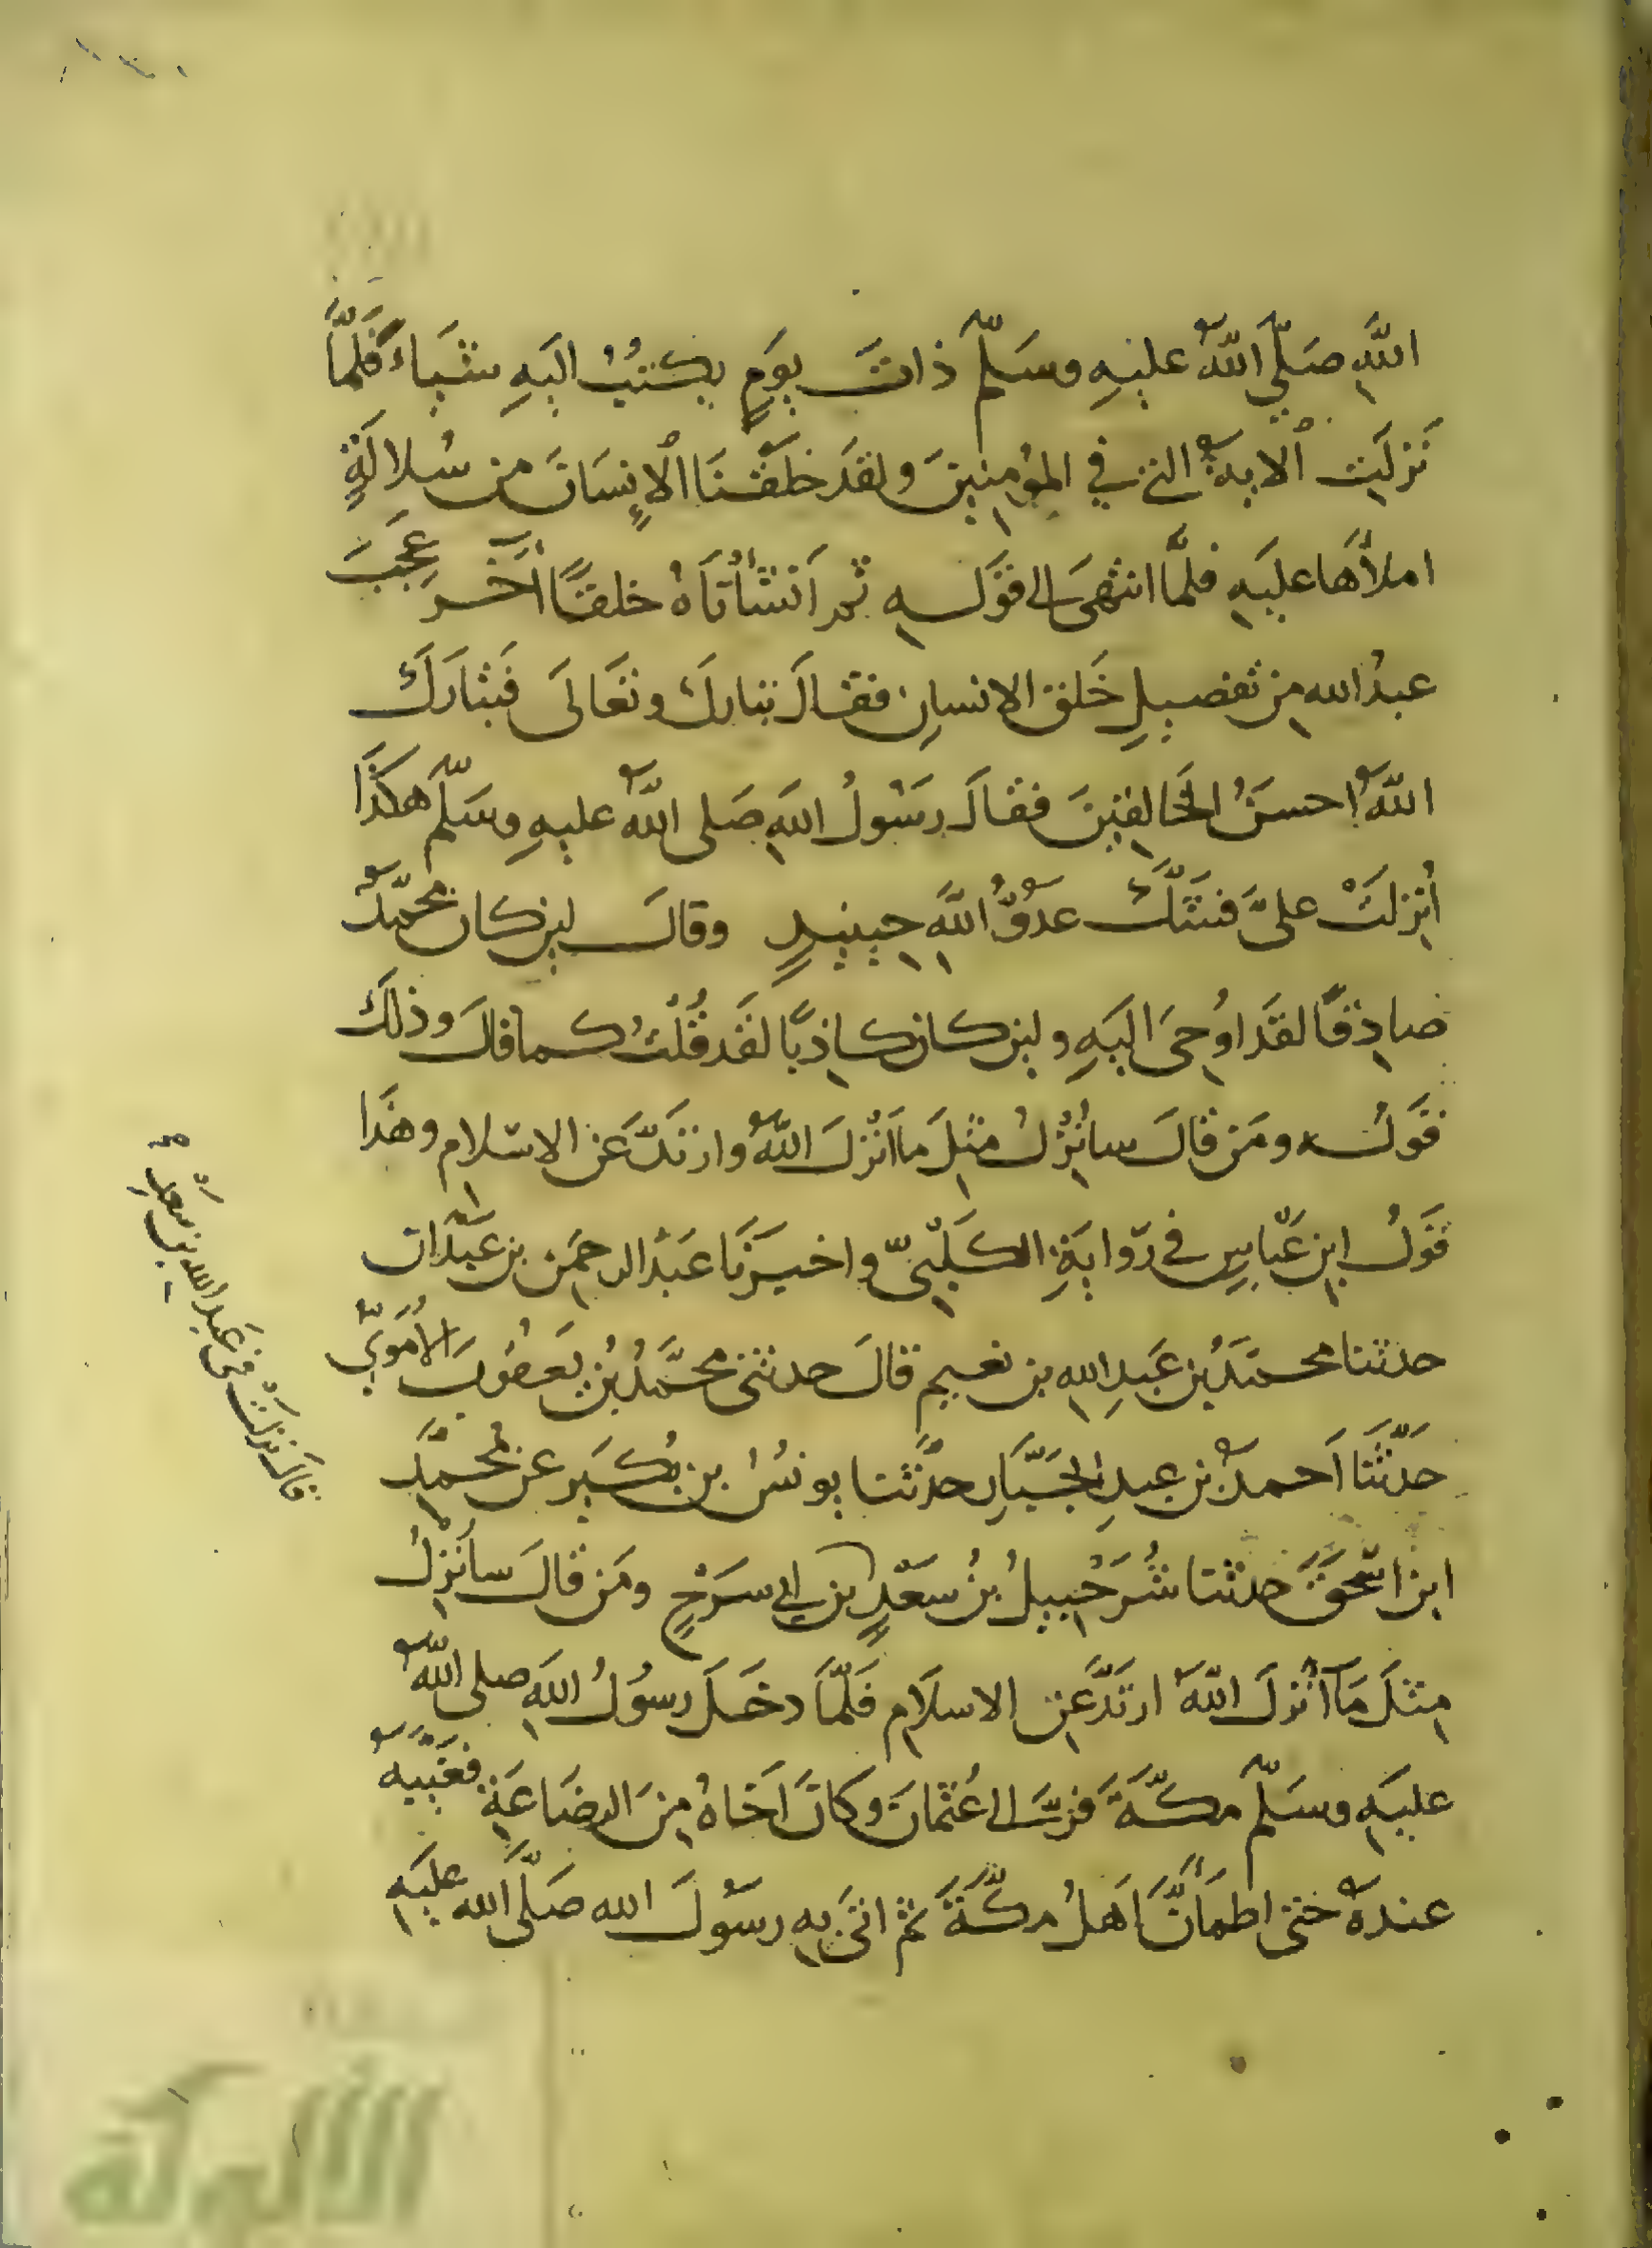 اللَّهِ صَلَّى اللَّهُ عليهِ وسَلَّم ذاتَ يوَمٍ يكتبُ اليَهِ شَيْاءً فَلَمَّا
نَزَلَتِ الاية التى في المؤمِنينَ ولقَد خلقْنَا الْإنِسَانَ مِن سُلالَةٍ
املأهَا عليَهِ فلمَّا انتهىَ الى قوَلهِ ثمر اَنشَأنَاهُ خلقًا آخَر عَجِبَ
عبدُ الله مِن تفصيلِ خَلق الانسانِ فقال تبارك وتعَالَى فَتبَارَكَ
اللَّهُ احسَنُ الخَالِقينَ فقالَ رسَوُلُ اللهِ صَلى اللَّهُ عليهِ وسَلَّم هكَذَا
أُنزِلَتْ علىَّ فشَكَّ عدُوُّ اللَّهِ حِينيِذٍ وقالَ لين كان محمَّدٌ
صادِقًا لقَد اوُحِىَ اليَهِ ولين كان كاذِبًا لقَد قُلْتُ كما قالَ وذلِكَ
قوَلُه ومَن قالَ سانُزِلُ مثِلَ ما انَزَلَ اللَّهُ وارتَدَّ عَن الاسْلامِ وهَذَا
قوَلُ ابن عَبَّاسٍ في رِوايَةِ الكَلْبيِّ واخبرَنَا عَبْد الرحمَنِ بن عَبْدان
حدثنا محمَّدُ بن عَبدِ اللهِ بن نعيم قالَ حدثنى محمَّدُ بْنُ يَعقُوبَ الأُمَويّ
حَدَّثَنَا اَحمدُ بن عبدِ الجَبَّارِ حدَّثَنا يونسُ بن بُكَير عن مُحمَّدِ
ابن اسْحَقَ حدثنا شُرَحْبِيلُ بنُ سَعْدٍ بن ابى سَرَحٍ ومَن قالَ سأُنزِلُ
مِثلَ مَا أنْزلَ اللَّهُ ارتَدَّ عَنِ الاسلَامِ فَلَمَّا دخَلَ رسوُلُ اللهِ صلى اللَّهُ
عليَهِ وسَلَّم مكَّةَ فرَّ الى عُثمَانَ وكانَ اَخَاهُ مِنَ الرضَاعَةِ فغَيَّبَه
عندهُ حتى اطمَأنَّ اَهلُ مكَّةَ ثُمَّ اتىَ بِه رسوُلَ الله صَلَّى الله عليَهِ
قالَ نزلَتْ فى عَبدِ الله بن سَعدٍ